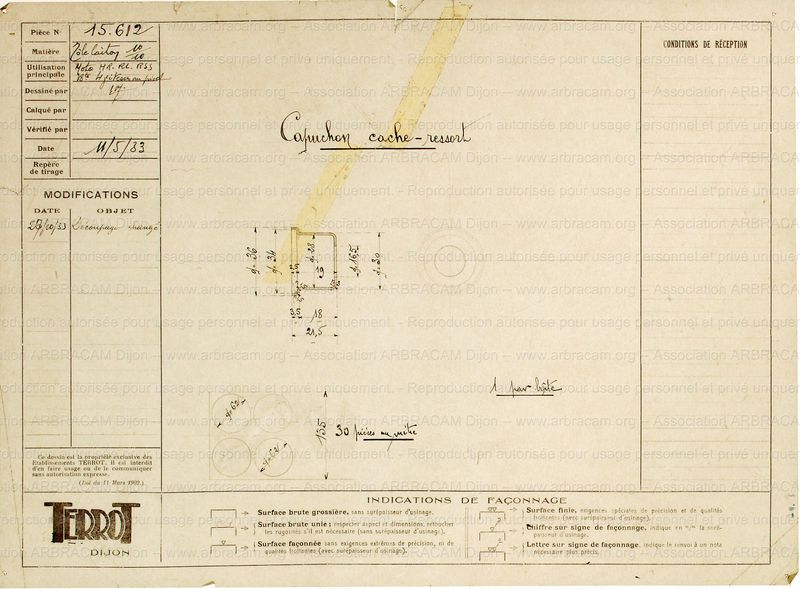 Pièce N° 15.612
Matière Tôle laiton 10/10
Utilisation principale Moto HR. RL. RSS
Dessiné par
Calqué par
Vérifié par
Date 11/5/33
Repère de tirage
MODIFICATIONS
DATE OBJET
/10/33 Découpage changé
CONDITIONS DE RÉCEPTION
Capuchon cache-ressort
φ. 36
φ. 34
φ. 28
19
φ 16,5
φ. 30
3,5 18
21,5
1 par boîte
φ. 62
φ. 62
135
30 pièces au mètre
Ce dessin est la propriété exclusive des
Etablissements TERROT. Il est interdit
d'en faire usage ou de le communiquer
sans autorisation expresse.
(Loi du 11 Mars 1902.)
TERROT
DIJON
INDICATIONS DE FAÇONNAGE
Surface brute grossière, sans surépaisseur d'usinage.
Surface brute unie : respecter aspect et dimensions, retoucher
les rugosités s'il est nécessaire (sans surépaisseur d'usinage).
Surface façonnée sans exigences extrêmes de précision, ni de
qualités frottantes (avec surépaisseur d'usinage).
Surface finie, exigences spéciales de précision et de qualités
frottantes (avec surépaisseur d'usinage).
Chiffre sur signe de façonnage, indique en m/m la surépaisseur d'usinage.
Lettre sur signe de façonnage, indique le renvoi à un nota
nécessaire plus précis.
www.arbracam.org – Association ARBRACAM Dijon – www.arbracam.org – Association ARBRACAM Dijon
Reproduction autorisée pour usage personnel et privé uniquement.